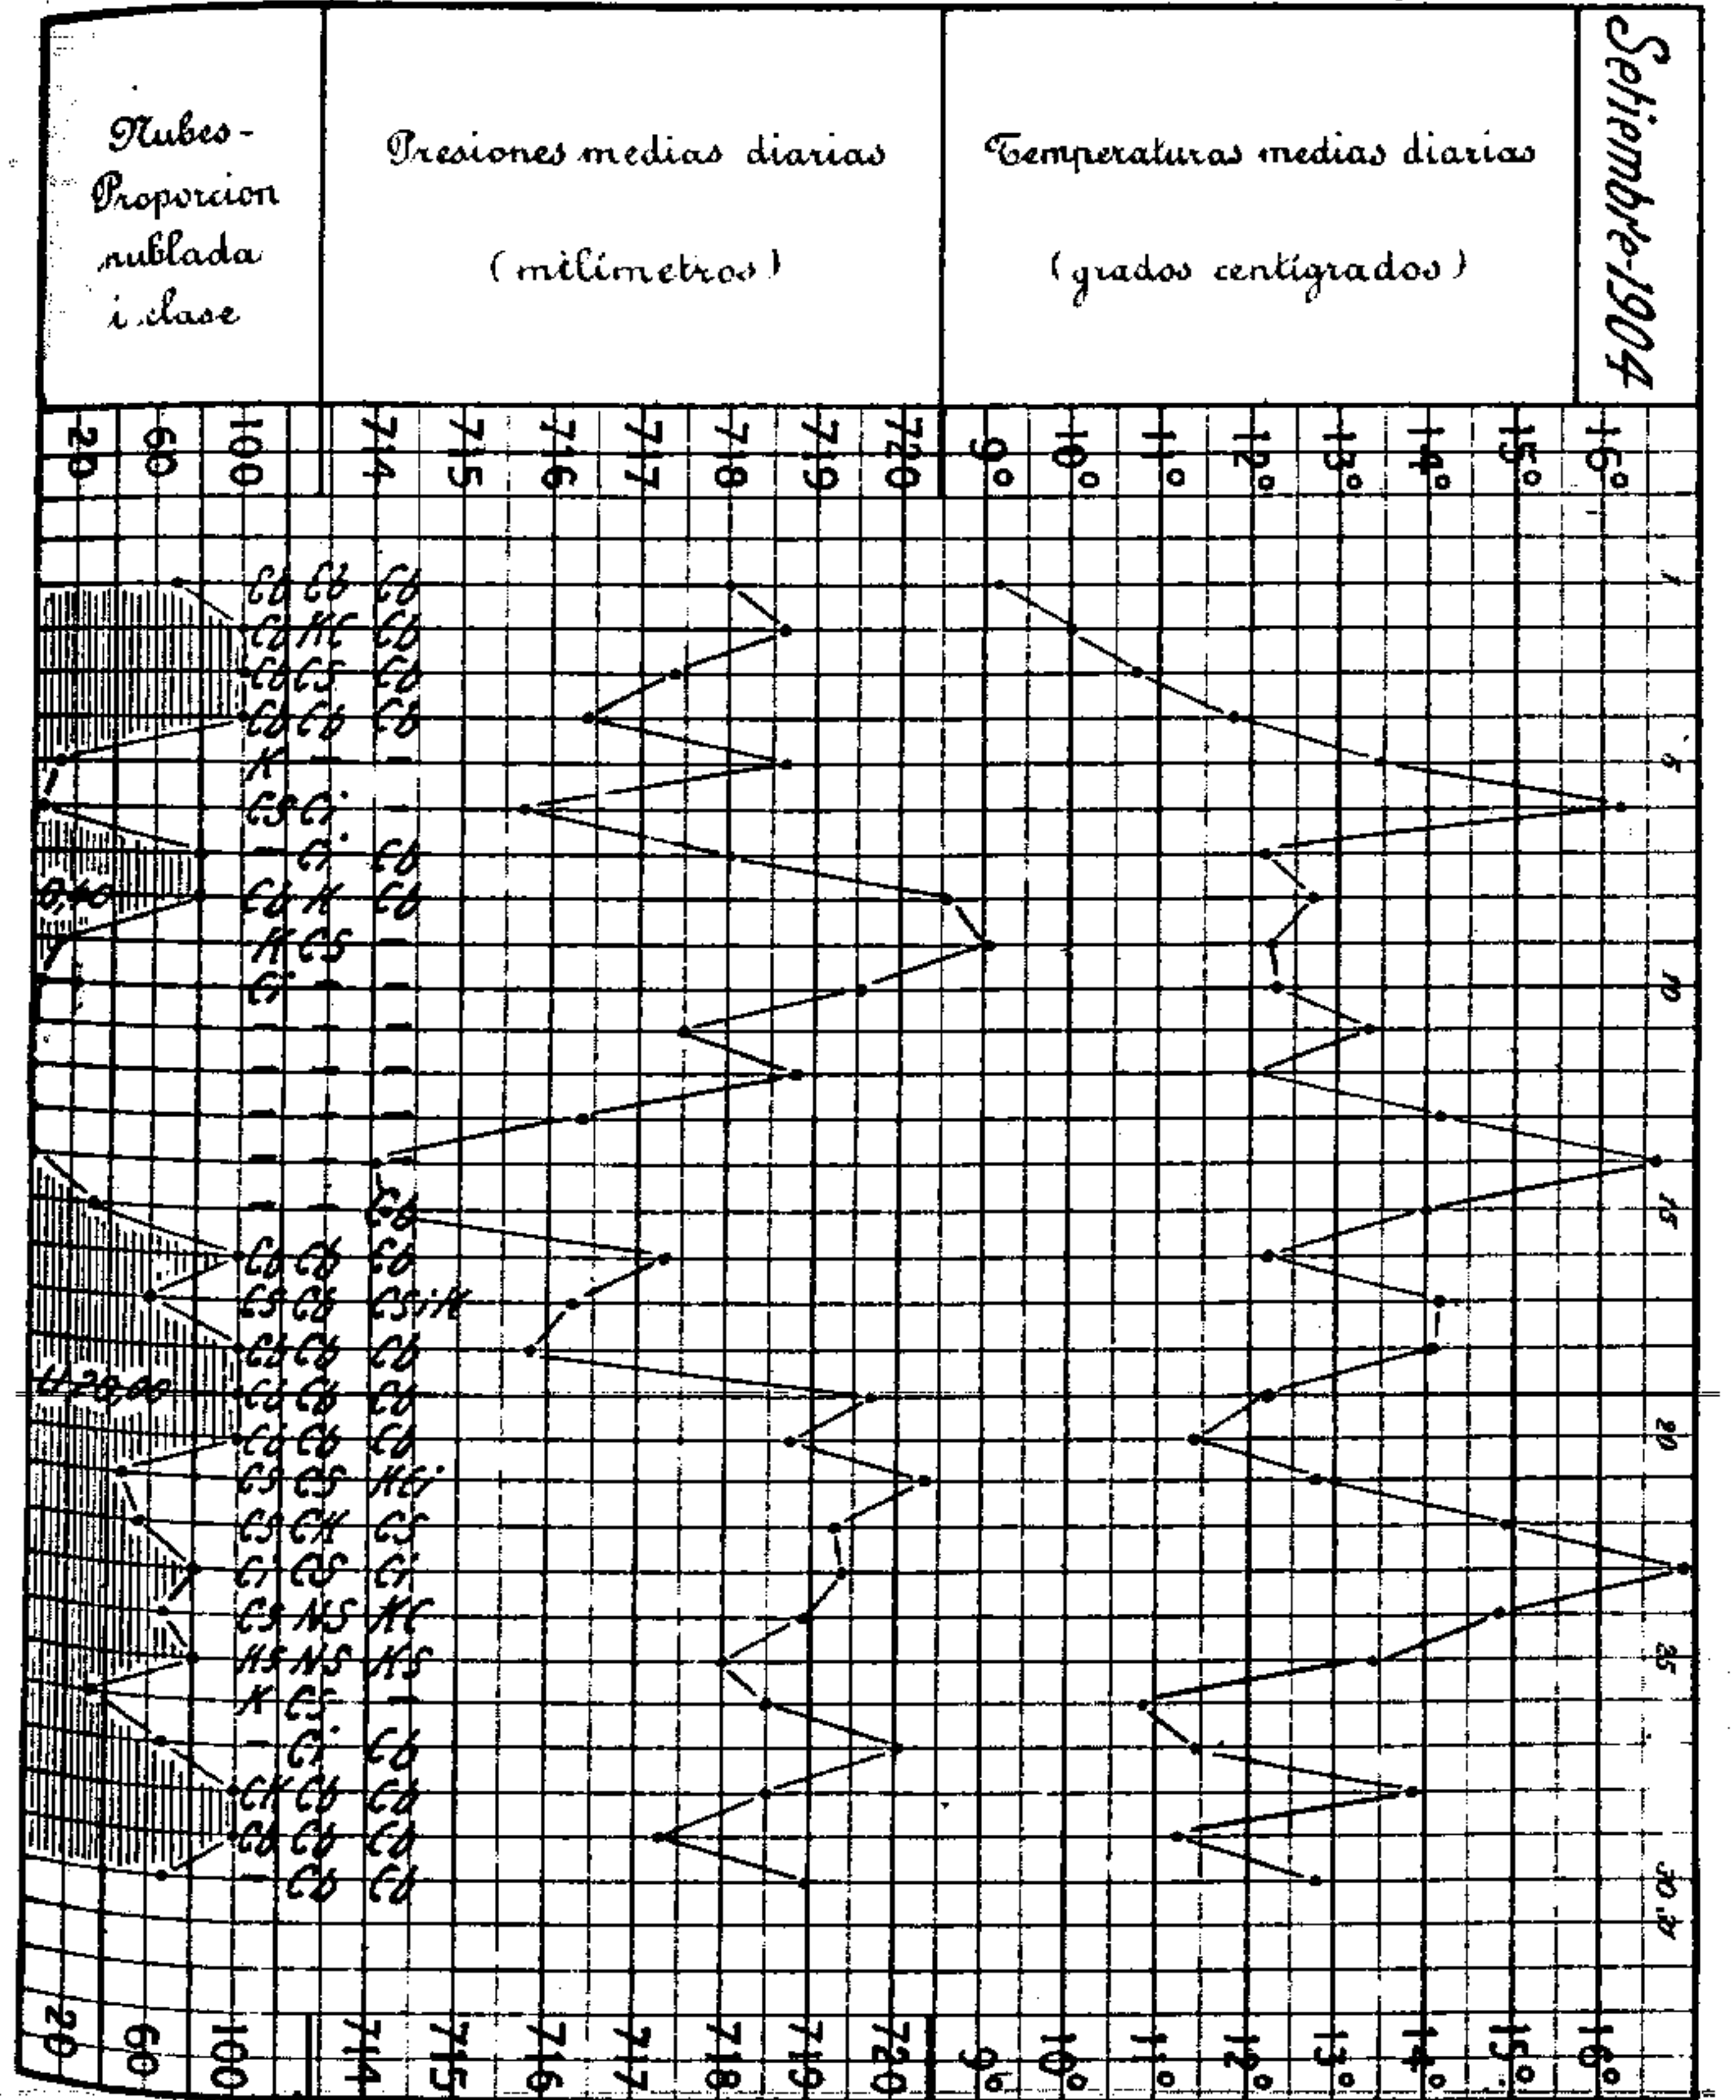 Nubes-
Proporcion
nublada
i clase
Presiones medias diarias
(milímetros)
Temperaturas medias diarias
(grados centígrados)
Setiembre-1904
20 60 100 714 715 716 717 718 719 720 9° 10° 11° 12° 13° 14° 15° 16°
Cb Cb Cb 1
Cb KC Cb
Cb CS Cb
Cb Cb Cb
K - - 5
CS Ci -
- Ci Cb
0,40 Cb K Cb
K CS -
Ci - - 10
- - -
- - -
- - -
- - -
- - Cb 15
Cb Cb Cb
CS Cb CSiK
Cb Cb Cb
Cb Cb Cb
Cb Cb Cb 20
CS CS KCi
CS CK CS
Ci CS Ci
CS NS KC
KS NS KS 25
K CS -
- Ci Cb
CK Cb Cb
Cb Cb Cb
- Cb Cb 30 31
20 60 100 714 715 716 717 718 719 720 9° 10° 11° 12° 13° 14° 15° 16°